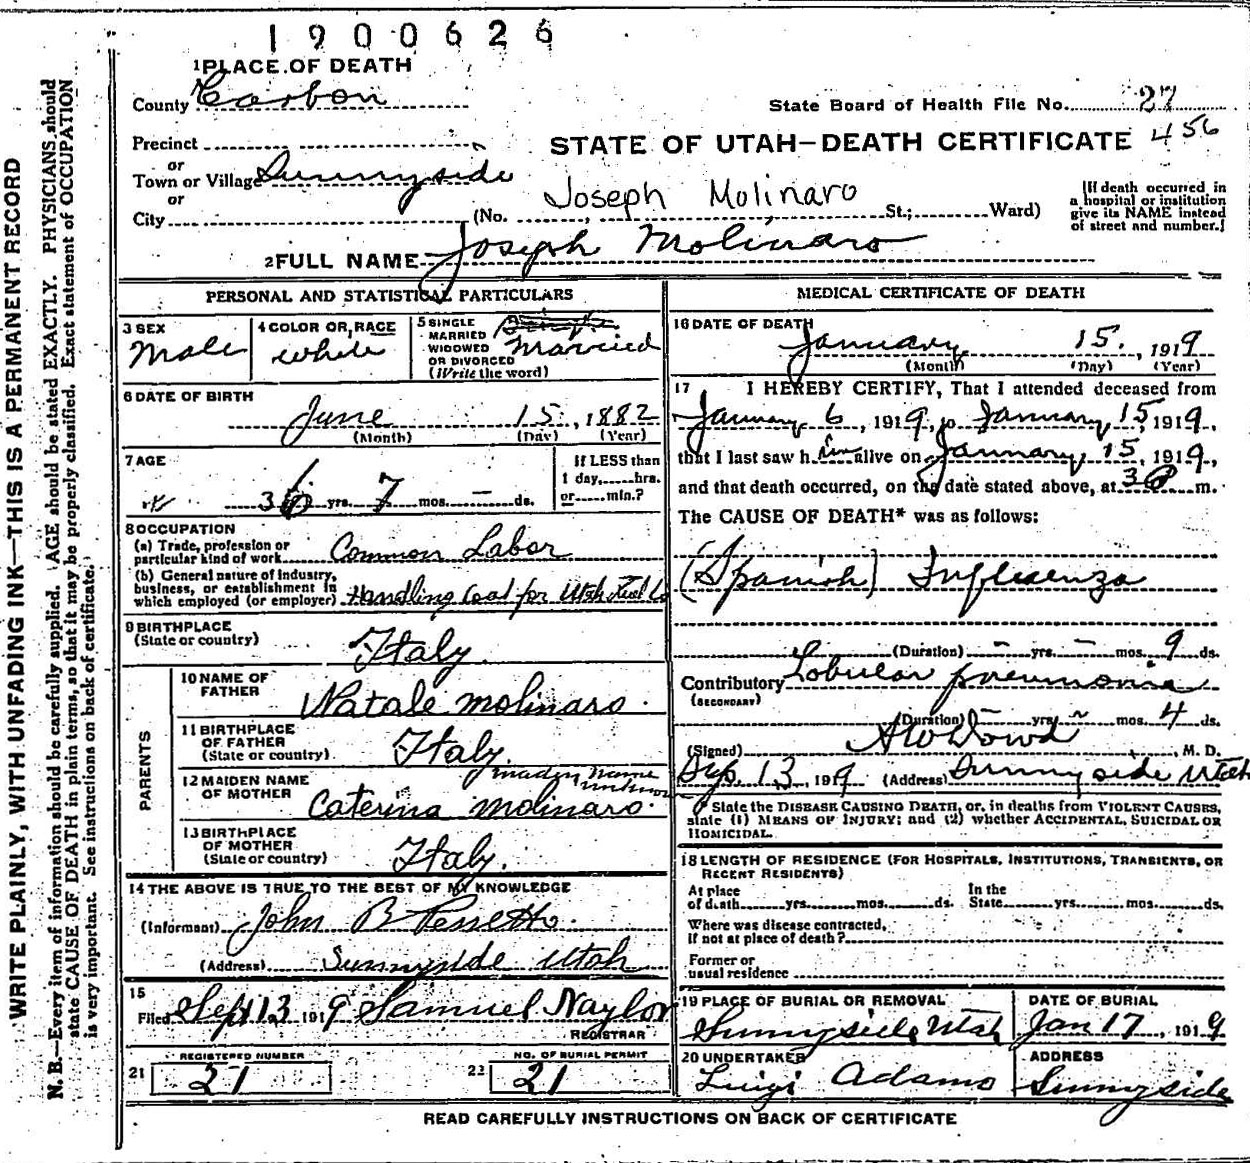 1900626
1 PLACE OF DEATH
County Carbon
State Board of Health File No. 27
Precinct
456
STATE OF UTAH—DEATH CERTIFICATE
or
Town or Village Sunnyside
or
City
Joseph Molinaro
(No. St.; Ward)
[If death occurred in
a hospital or institution
give its NAME instead
of street and number.]
2 FULL NAME Joseph Molinaro
PERSONAL AND STATISTICAL PARTICULARS
3 SEX
Male
4 COLOR OR RACE
white
5 SINGLE
MARRIED
WIDOWED
OR DIVORCED
(Write the word)
Married
6 DATE OF BIRTH
June 15, 1882
(Month) (Day) (Year)
7 AGE
36 yrs. 7 mos. – ds.
If LESS than
1 day, hrs.
or min.?
8 OCCUPATION
(a) Trade, profession or
particular kind of work Common Labor
(b) General nature of industry,
business, or establishment in
which employed (or employer) Handling Coal for Utah Fuel Co
9 BIRTHPLACE
(State or country)
Italy.
PARENTS
10 NAME OF
FATHER
Natale Molinaro.
11 BIRTHPLACE
OF FATHER
(State or country)
Italy.
12 MAIDEN NAME
OF MOTHER
maden name
unknown
Caterina Molinaro.
13 BIRTHPLACE
OF MOTHER
(State or country)
Italy.
14 THE ABOVE IS TRUE TO THE BEST OF MY KNOWLEDGE
(Informant) John B
(Address) Sunnyside Utah
15
Filed Sept 13 1919 Samuel Naylor
REGISTRAR
REGISTERED NUMBER
21 27
NO. OF BURIAL PERMIT
22 21
MEDICAL CERTIFICATE OF DEATH
16 DATE OF DEATH
January 15., 1919
(Month) (Day) (Year)
17 I HEREBY CERTIFY, That I attended deceased from
January 6, 1919, to January 15, 1919,
that I last saw him alive on January 15, 1919,
and that death occurred, on the date stated above, at 3 P m.
The CAUSE OF DEATH* was as follows:
(Spanish) Influenza
(Duration) – yrs. – mos. 9 ds.
Contributory Lobular pneumonia
(SECONDARY)
(Duration) – yrs. ~ mos. 4 ds.
(Signed) A W Dowd, M. D.
Sep. 13, 1919 (Address) Sunnyside Utah
* State the DISEASE CAUSING DEATH, or, in deaths from VIOLENT CAUSES,
state (1) MEANS OF INJURY; and (2) whether ACCIDENTAL, SUICIDAL OR
HOMICIDAL.
18 LENGTH OF RESIDENCE (FOR HOSPITALS, INSTITUTIONS, TRANSIENTS, OR
RECENT RESIDENTS)
At place
of death yrs. mos. ds.
In the
State yrs. mos. ds.
Where was disease contracted,
if not at place of death?
Former or
usual residence
19 PLACE OF BURIAL OR REMOVAL
Sunnyside, Utah
DATE OF BURIAL
Jan 17, 1919
20 UNDERTAKER
Luigi Adamo
ADDRESS
Sunnyside
READ CAREFULLY INSTRUCTIONS ON BACK OF CERTIFICATE
WRITE PLAINLY, WITH UNFADING INK—THIS IS A PERMANENT RECORD
N. B.—Every item of information should be carefully supplied. AGE should be stated EXACTLY. PHYSICIANS should
state CAUSE OF DEATH in plain terms, so that it may be properly classified. Exact statement of OCCUPATION
is very important. See instructions on back of certificate.